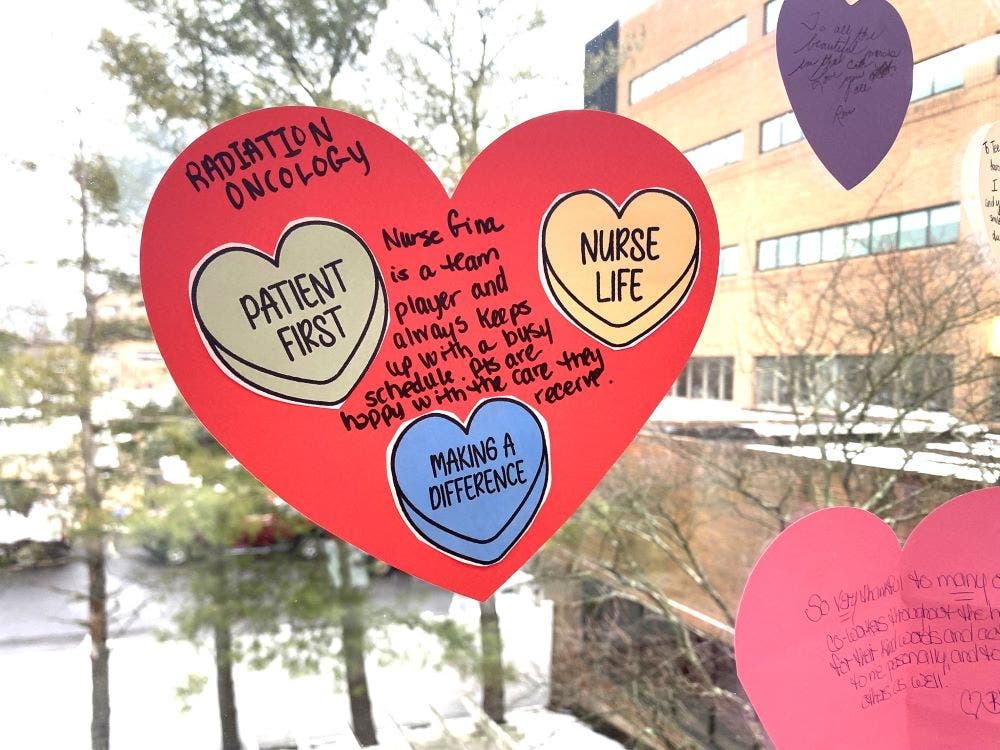 RADIATION
ONCOLOGY
PATIENT
FIRST
Nurse Gina
is a team
player and
always keeps
up with a busy
schedule. pts are
happy with the care they
receive.
NURSE
LIFE
MAKING A
DIFFERENCE
To all the
beautiful
in the
Love you
all
So very thankful to many
co-workers throughout the
for their kind words and
to me personally, and to
others as well."